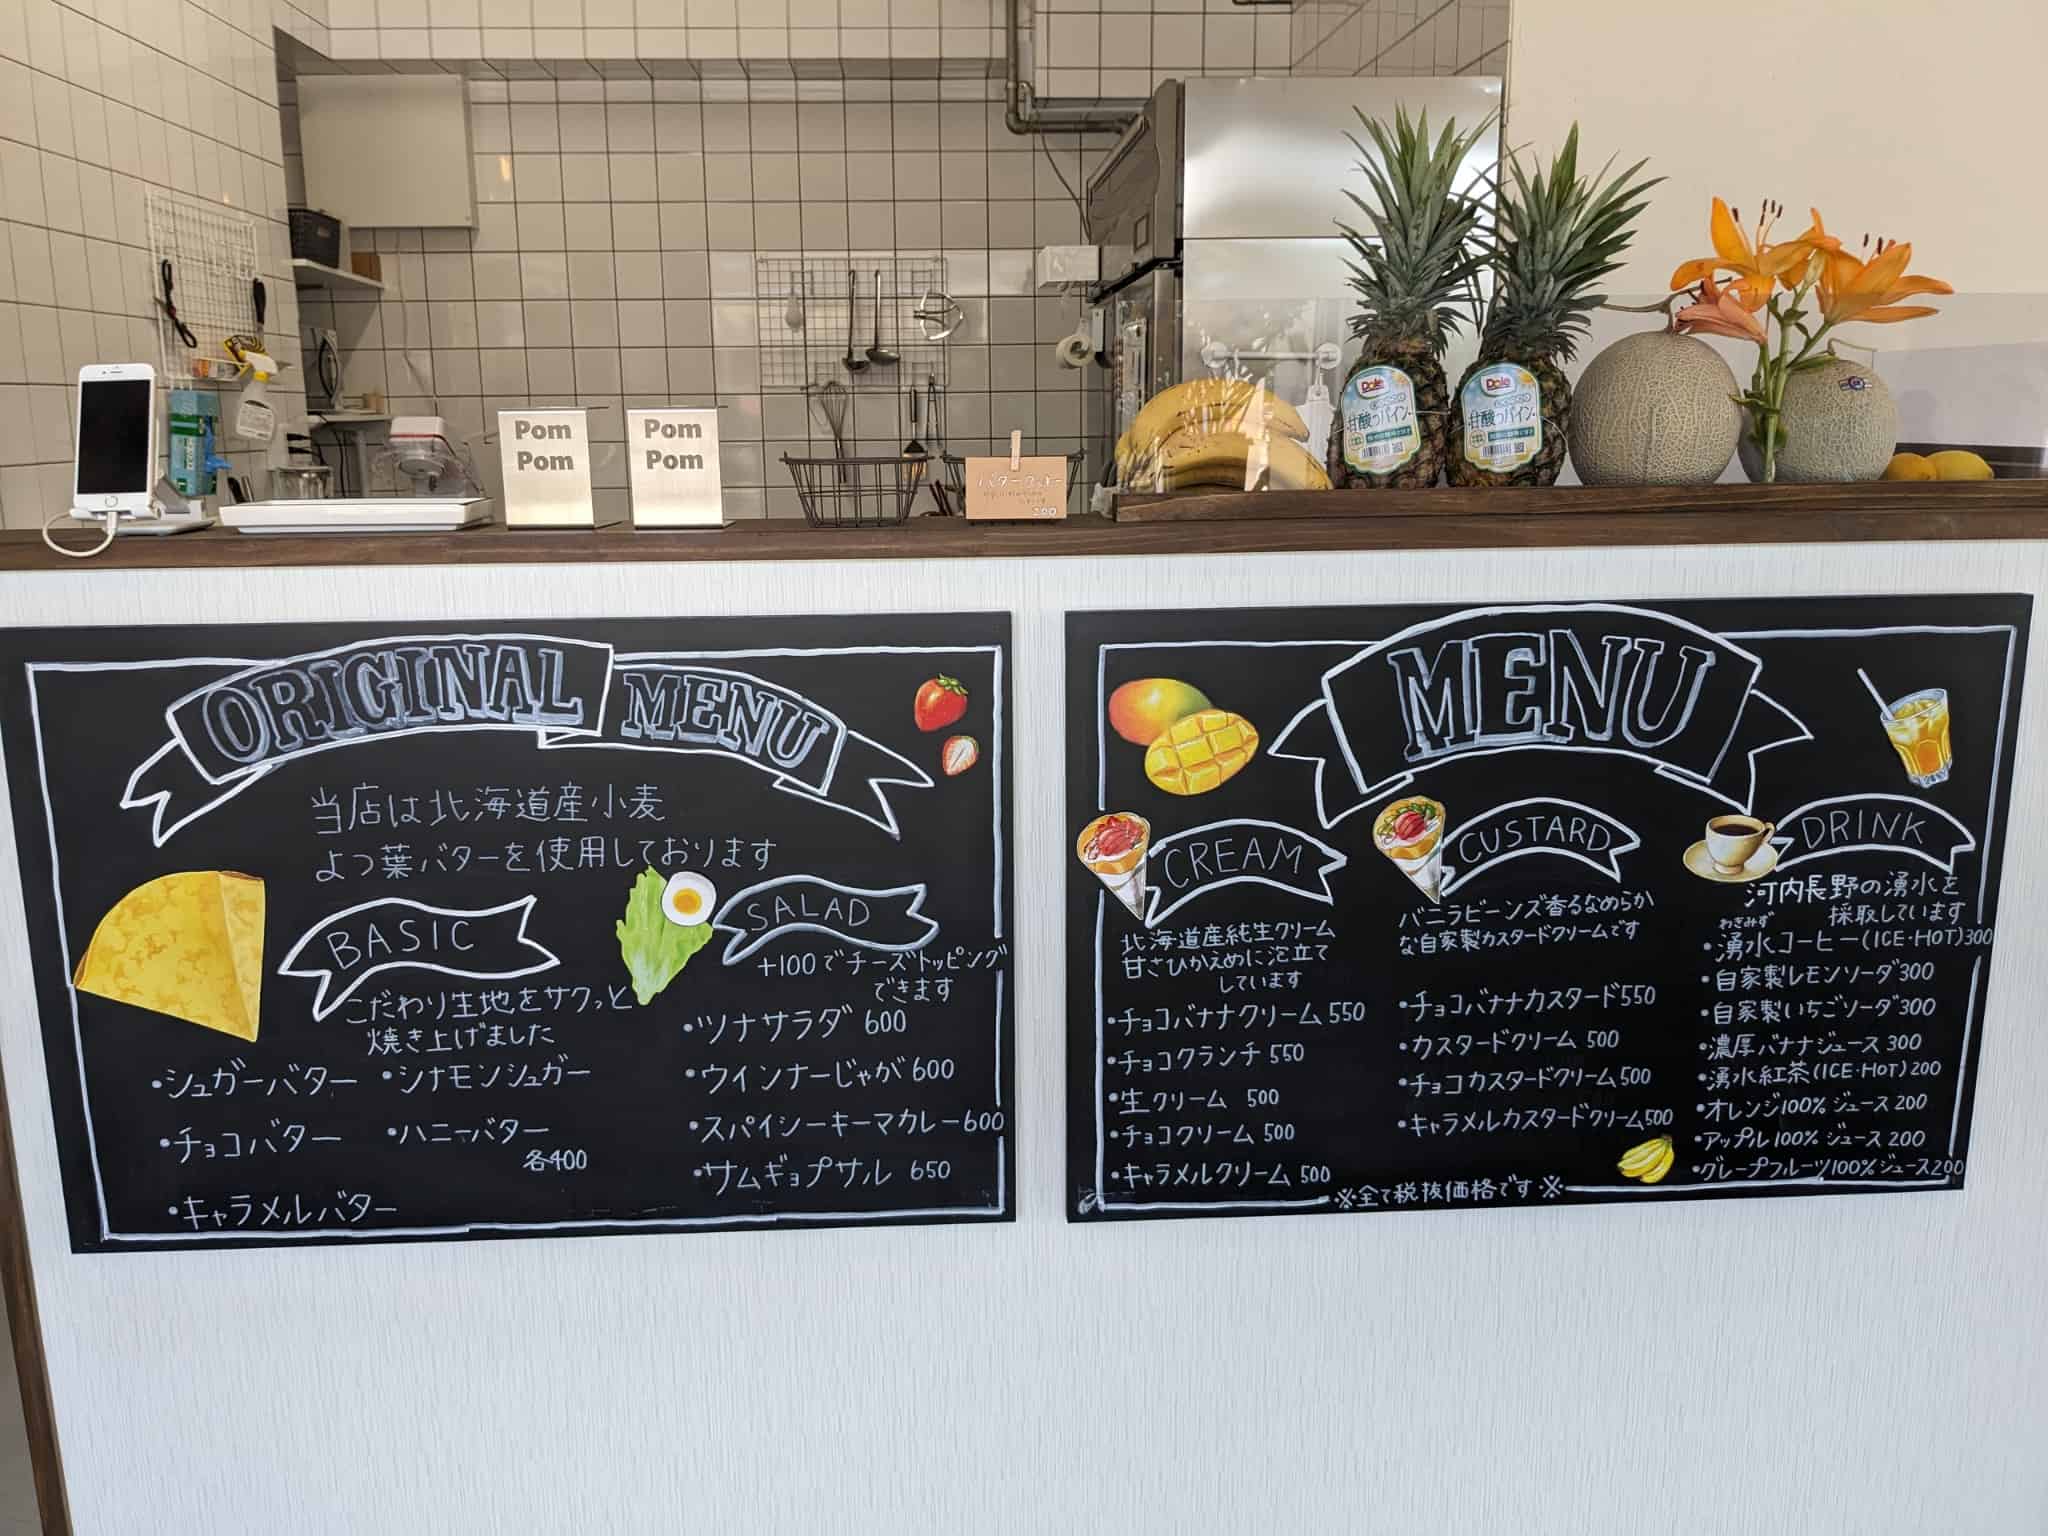 Pom
Pom
Pom
Pom
バタークッキー
200
Dole
甘酸っパイン
Dole
甘酸っパイン
ORIGINAL MENU
当店は北海道産小麦
よつ葉バターを使用しております
BASIC
こだわり生地をサクッと
焼き上げました
・シュガーバター ・シナモンシュガー
・チョコバター ・ハニーバター
各400
・キャラメルバター
SALAD
+100でチーズトッピング
できます
・ツナサラダ 600
・ウインナーじゃが 600
・スパイシーキーマカレー 600
・サムギョプサル 650
MENU
CREAM
北海道産純生クリーム
甘さひかえめに泡立て
しています
・チョコバナナクリーム 550
・チョコクランチ 550
・生クリーム 500
・チョコクリーム 500
・キャラメルクリーム 500
CUSTARD
バニラビーンズ香るなめらか
な自家製カスタードクリームです
・チョコバナナカスタード 550
・カスタードクリーム 500
・チョコカスタードクリーム 500
・キャラメルカスタードクリーム 500
DRINK
河内長野の湧水を
採取しています
わきみず
・湧水コーヒー(ICE・HOT)300
・自家製レモンソーダ 300
・自家製いちごソーダ 300
・濃厚バナナジュース 300
・湧水紅茶(ICE・HOT)200
・オレンジ100%ジュース 200
・アップル100%ジュース 200
・グレープフルーツ100%ジュース 200
※全て税抜価格です※